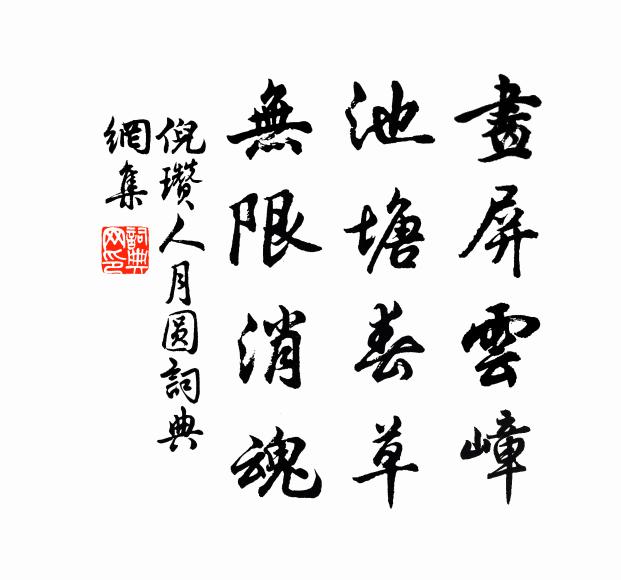 畫屏雲嶂
池塘春草
無限消魂
倪瓚人月圆詞典
網集
詞典
网印